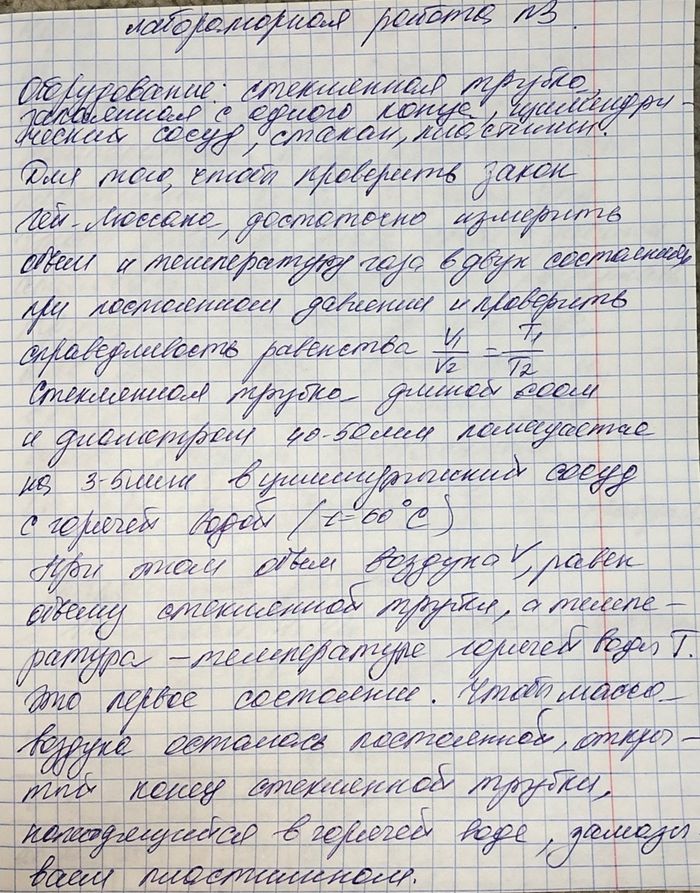 лабораторная работа №3.
Оборудование: стеклянная трубка,
запаянная с одного конца, цилиндри-
ческий сосуд, стакан, пластилин.
Для того, чтобы проверить закон
Гей-Люссака, достаточно измерить
объем и температуру газа в двух состояниях
при постоянном давлении и проверить
справедливость равенства V1/V2 = T1/T2
Стеклянная трубка длиной
и диаметром 40-50мм помещается
на 3-5мин в цилиндрический сосуд
с горячей водой (t=60°C)
При этом объем воздуха V, равен
объему стеклянной трубки, а темпе-
ратура – температуре горячей воды T.
Это первое состояние. Чтобы масса
воздуха осталась постоянной, откры-
тый конец стеклянной трубки,
находящийся в горячей воде, замазы
ваем пластилином.